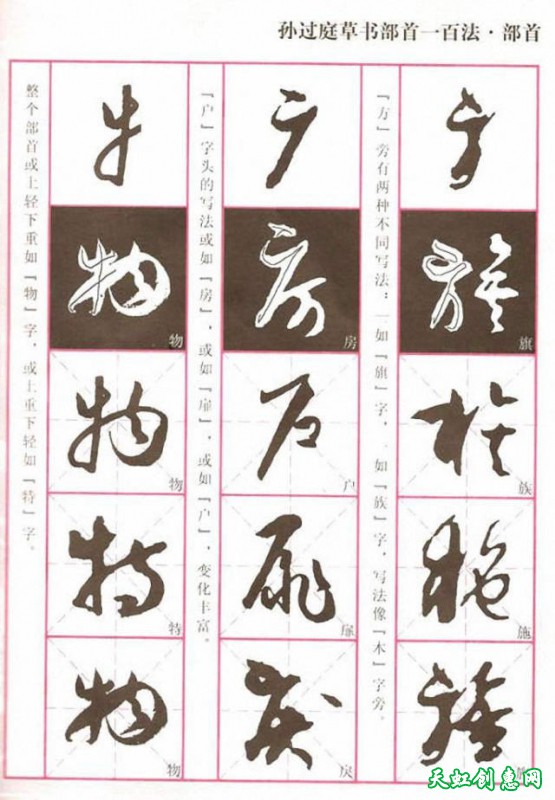 孙过庭草书部首一百法·部首
「方」旁有两种不同写法：一如「旗」字，一如「族」字，写法像「木」字旁。
旗
族
施
「户」字头的写法或如「房」，或如「扉」，或如「户」，变化丰富。
房
户
扉
戾
整个部首或上轻下重如「物」字，或上重下轻如「特」字。
物
物
特
物
天虹创意网